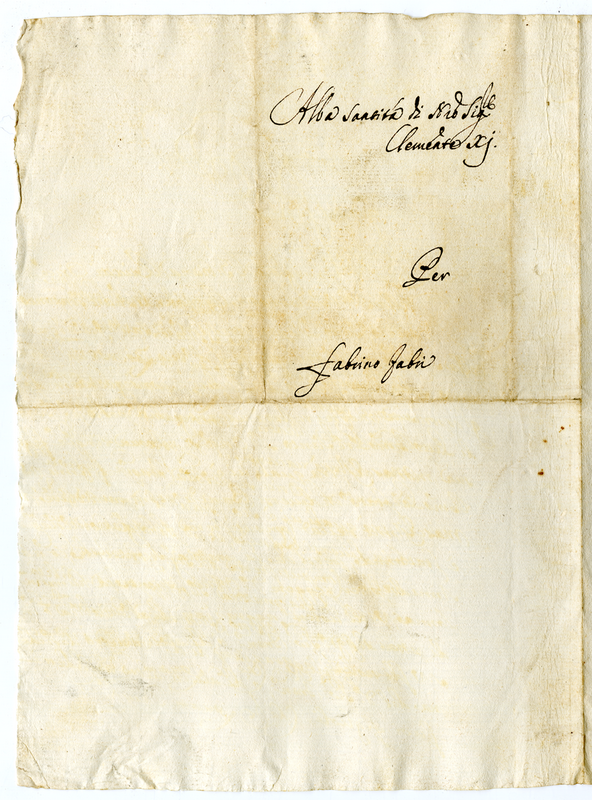 Alla Santità di Nrõ Sig.re
Clemente Xj.
Per
Fabrino Fabri